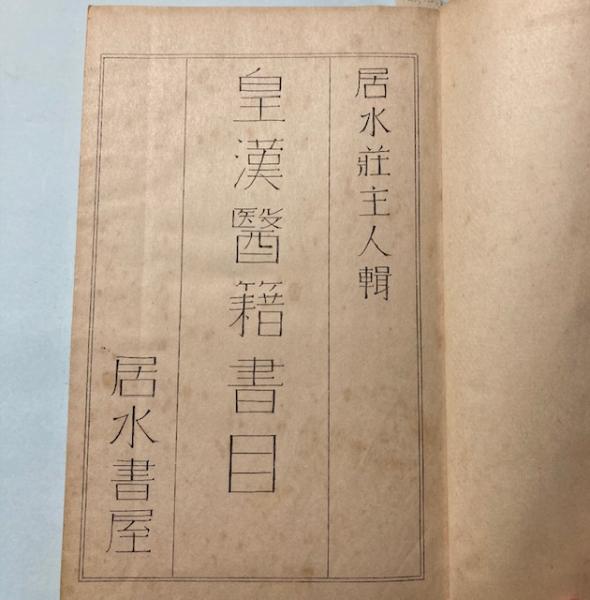 居水莊主人輯
皇漢醫籍書目
居水書屋